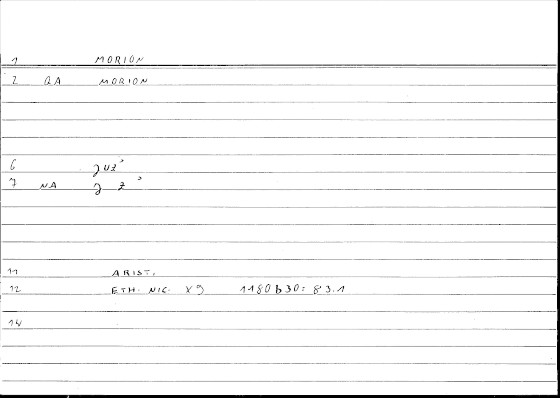 1 MORION
2 QA MORION
6 juz'
7 NA j z '
11 ARIST.
12 ETH. NIC. X 9 1180 b 30: 83.1
14